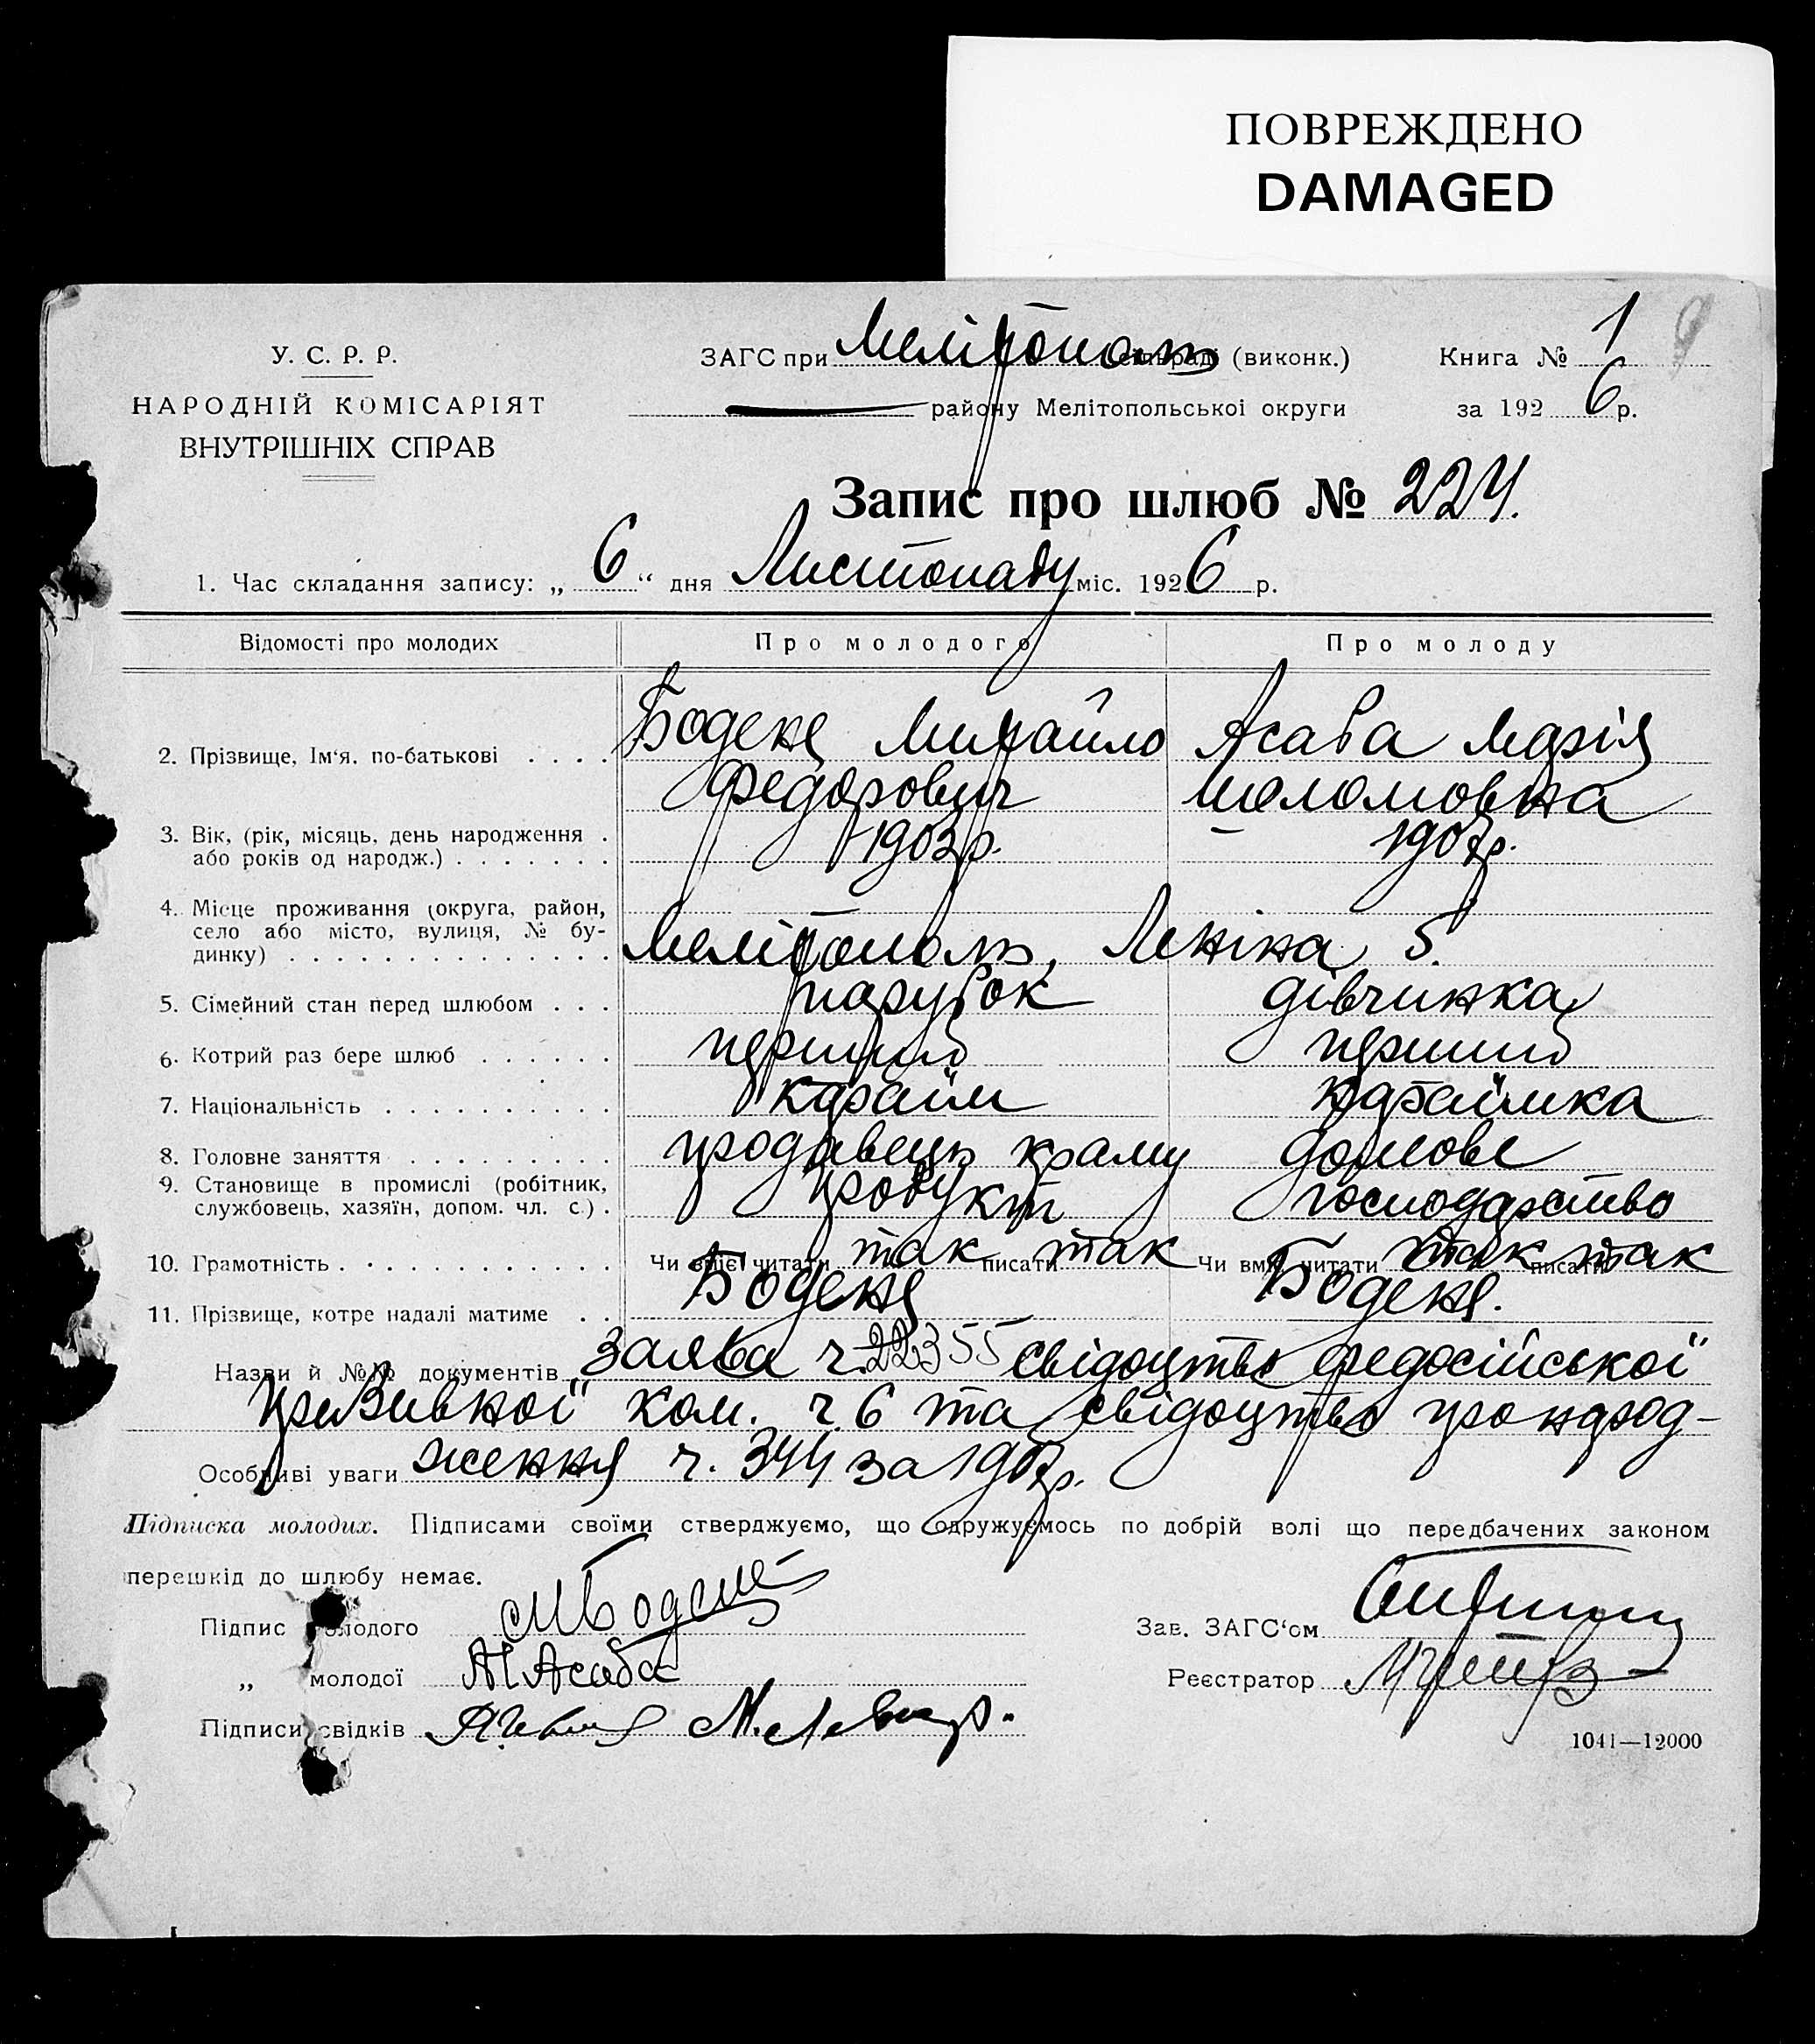 ПОВРЕЖДЕНО
DAMAGED
У. С. Р. Р.
НАРОДНІЙ КОМІСАРІЯТ
ВНУТРІШНІХ СПРАВ
ЗАГС при Мелітополь сільраді (виконк.) Книга № 1
району Мелітопольської округи за 1926 р.
Запис про шлюб № 224.
1. Час складання запису: „ 6 “ дня Листопаду міс. 1926 р.
Відомості про молодих Про молодого Про молоду
2. Прізвище, Ім'я, по-батькові . . . . Бодене Михайло Асаба Марія
Федорович Шоломовна
3. Вік, (рік, місяць, день народження . 1903р. 1907р.
або років од народж.) . . . . . . .
4. Місце проживання (округа, район,
село або місто, вулиця, № бу-
динку) . . . . . . . . . . . . . . Мелітополь, Леніна 5.
5. Сімейний стан перед шлюбом . . . парубок дівчинка
6. Котрий раз бере шлюб . . . . . . перший перший
7. Національність . . . . . . . . . . караїм караїмка
8. Головне заняття . . . . . . . . . продавець краму домове
9. Становище в промислі (робітник, продукт господарство
службовець, хазяїн, допом. чл. с.) .
10. Грамотність . . . . . . . . . . . . Чи вміє читати так писати так Чи вміє читати так писати так
11. Прізвище, котре надалі матиме . . Бодене Бодене.
Назви й №№ документів заява ч. 22355 свідоцтво федосійської
призивної ком. ч. 6 та свідоцтво про народ-
Особливі уваги ження ч. 344 за 1907р.
Підписка молодих. Підписами своїми стверджуємо, що одружуємось по добрій волі що передбачених законом
перешкід до шлюбу немає.
Підпис молодого МБодене
Зав. ЗАГС'ом
„ молодої М Асаба
Реєстратор
Підписи свідків
1041—12000